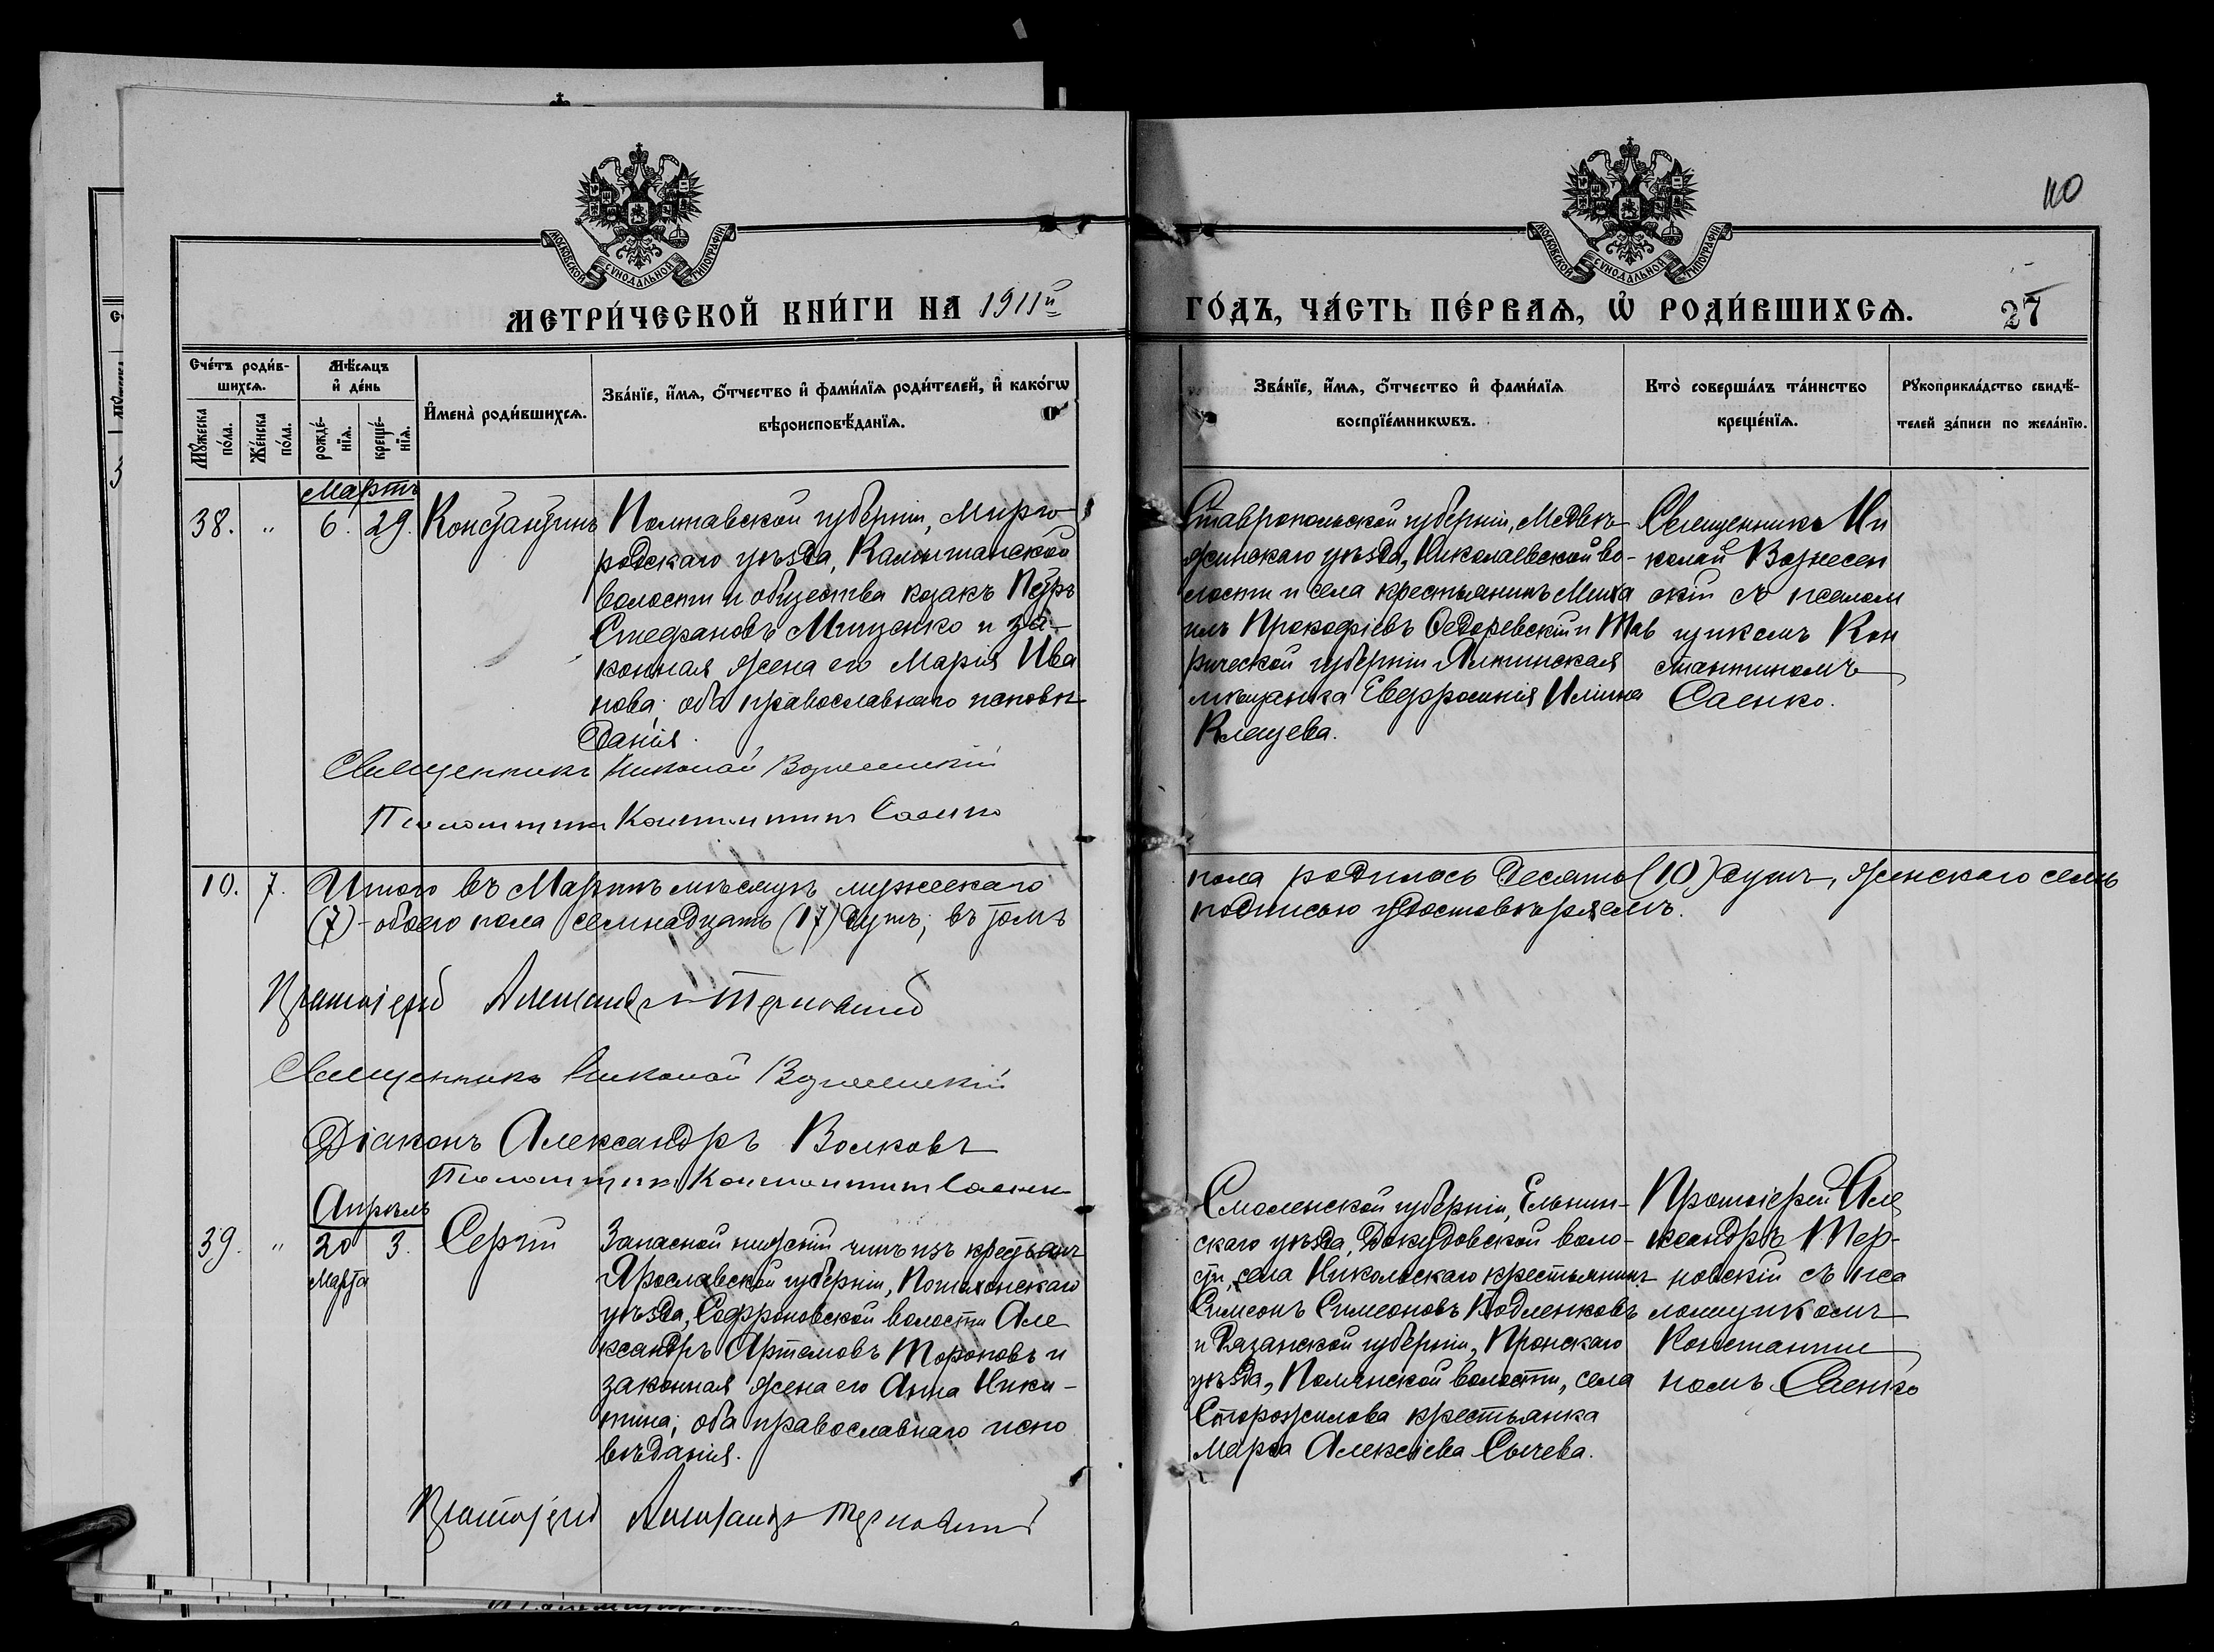 110
МОСКОВСКОЙ СѴНОДАЛЬНОЙ ТИПОГРАФІИ
МОСКОВСКОЙ СѴНОДАЛЬНОЙ ТИПОГРАФІИ
МЕТРИ́ЧЕСКОЙ КНИ́ГИ НА 1911й
ГО́ДЪ, ЧА́СТЬ ПЕ́РВАѦ, Ѽ РОДИ́ВШИХСѦ.
27
Сче́тъ роди́в-
шихсѧ.
Мѣ́сѧцъ
и҆ де́нь
Мꙋ́жеска
по́ла.
Же́нска
по́ла.
рожде́-
нїѧ.
креще́-
нїѧ.
И҆мена̀ роди́вшихсѧ.
Зва́нїе, и҆́мѧ, ѻ҆́тчество и҆ фами́лїѧ роди́телей, и҆ како́гѡ
вѣроисповѣ́данїѧ.
Зва́нїе, и҆́мѧ, ѻ҆́тчество и҆ фами́лїѧ
воспрїе́мникѡвъ.
Кто̀ соверша́лъ та́инство
креще́нїѧ.
Рꙋкоприкла́дство свидѣ́-
телей за́писи по жела́нїю.
Мартъ
38. " 6. 29. Константинъ
Полтавской губерніи, Мирго-
родскаго уѣзда, Камышанской
волости и общества козакъ Петръ
Стефановъ Мищенко и за-
конная жена его Марія Ива
нова; оба православнаго исповѣ-
данія.
Ставропольской губерніи, Медвѣ-
жинскаго уѣзда, Николаевской во-
лости и села крестьянинъ Миха
илъ Прокофіевъ Седоревскій и Тав
рической губерніи Ялтинская
мѣщанка Евфросинія Ильина
Клещева.
Священникъ Ни
колай Вознесен
скій съ псалом
щикомъ Кон
стантиномъ
Саенко.
Священникъ Николай Вознесенскій
Псаломщикъ Константинъ Саенко
10. 7. Итого въ Мартѣ мѣсяцѣ мужескаго
пола родилось десять (10) душъ, женскаго семь
(7) - обоего пола семнадцать (17) душъ; въ томъ
подписью удостовѣряемъ.
Протоіерей Александръ Терновскій
Священникъ Николай Вознесенскій
Діаконъ Александръ Волковъ
Псаломщикъ Константинъ Саенко
Апрѣль
39. " 20 3. Сергій
Марта
Запасной нижній чинъ изъ крестьянъ
Ярославской губерніи, Пошехонскаго
уѣзда, Софроновской волости Але
ксандръ Артемовъ Тороповъ и
законная жена его Анна Ники-
тина; оба православнаго испо
вѣданія.
Смоленской губерніи, Ельнин-
скаго уѣзда, Докудовской воло-
сти, села Никольскаго крестьянинъ
Симеонъ Симеоновъ Подленковъ
и Рязанской губерніи, Пронскаго
уѣзда, волости, села
Сторожилова крестьянка
Марѳа Алексіева Сычева.
Протоіерей Але
ксандръ Тер-
новскій съ пса
ломщикомъ
Константи
номъ Саенко
Протоіерей Александръ Терновскій